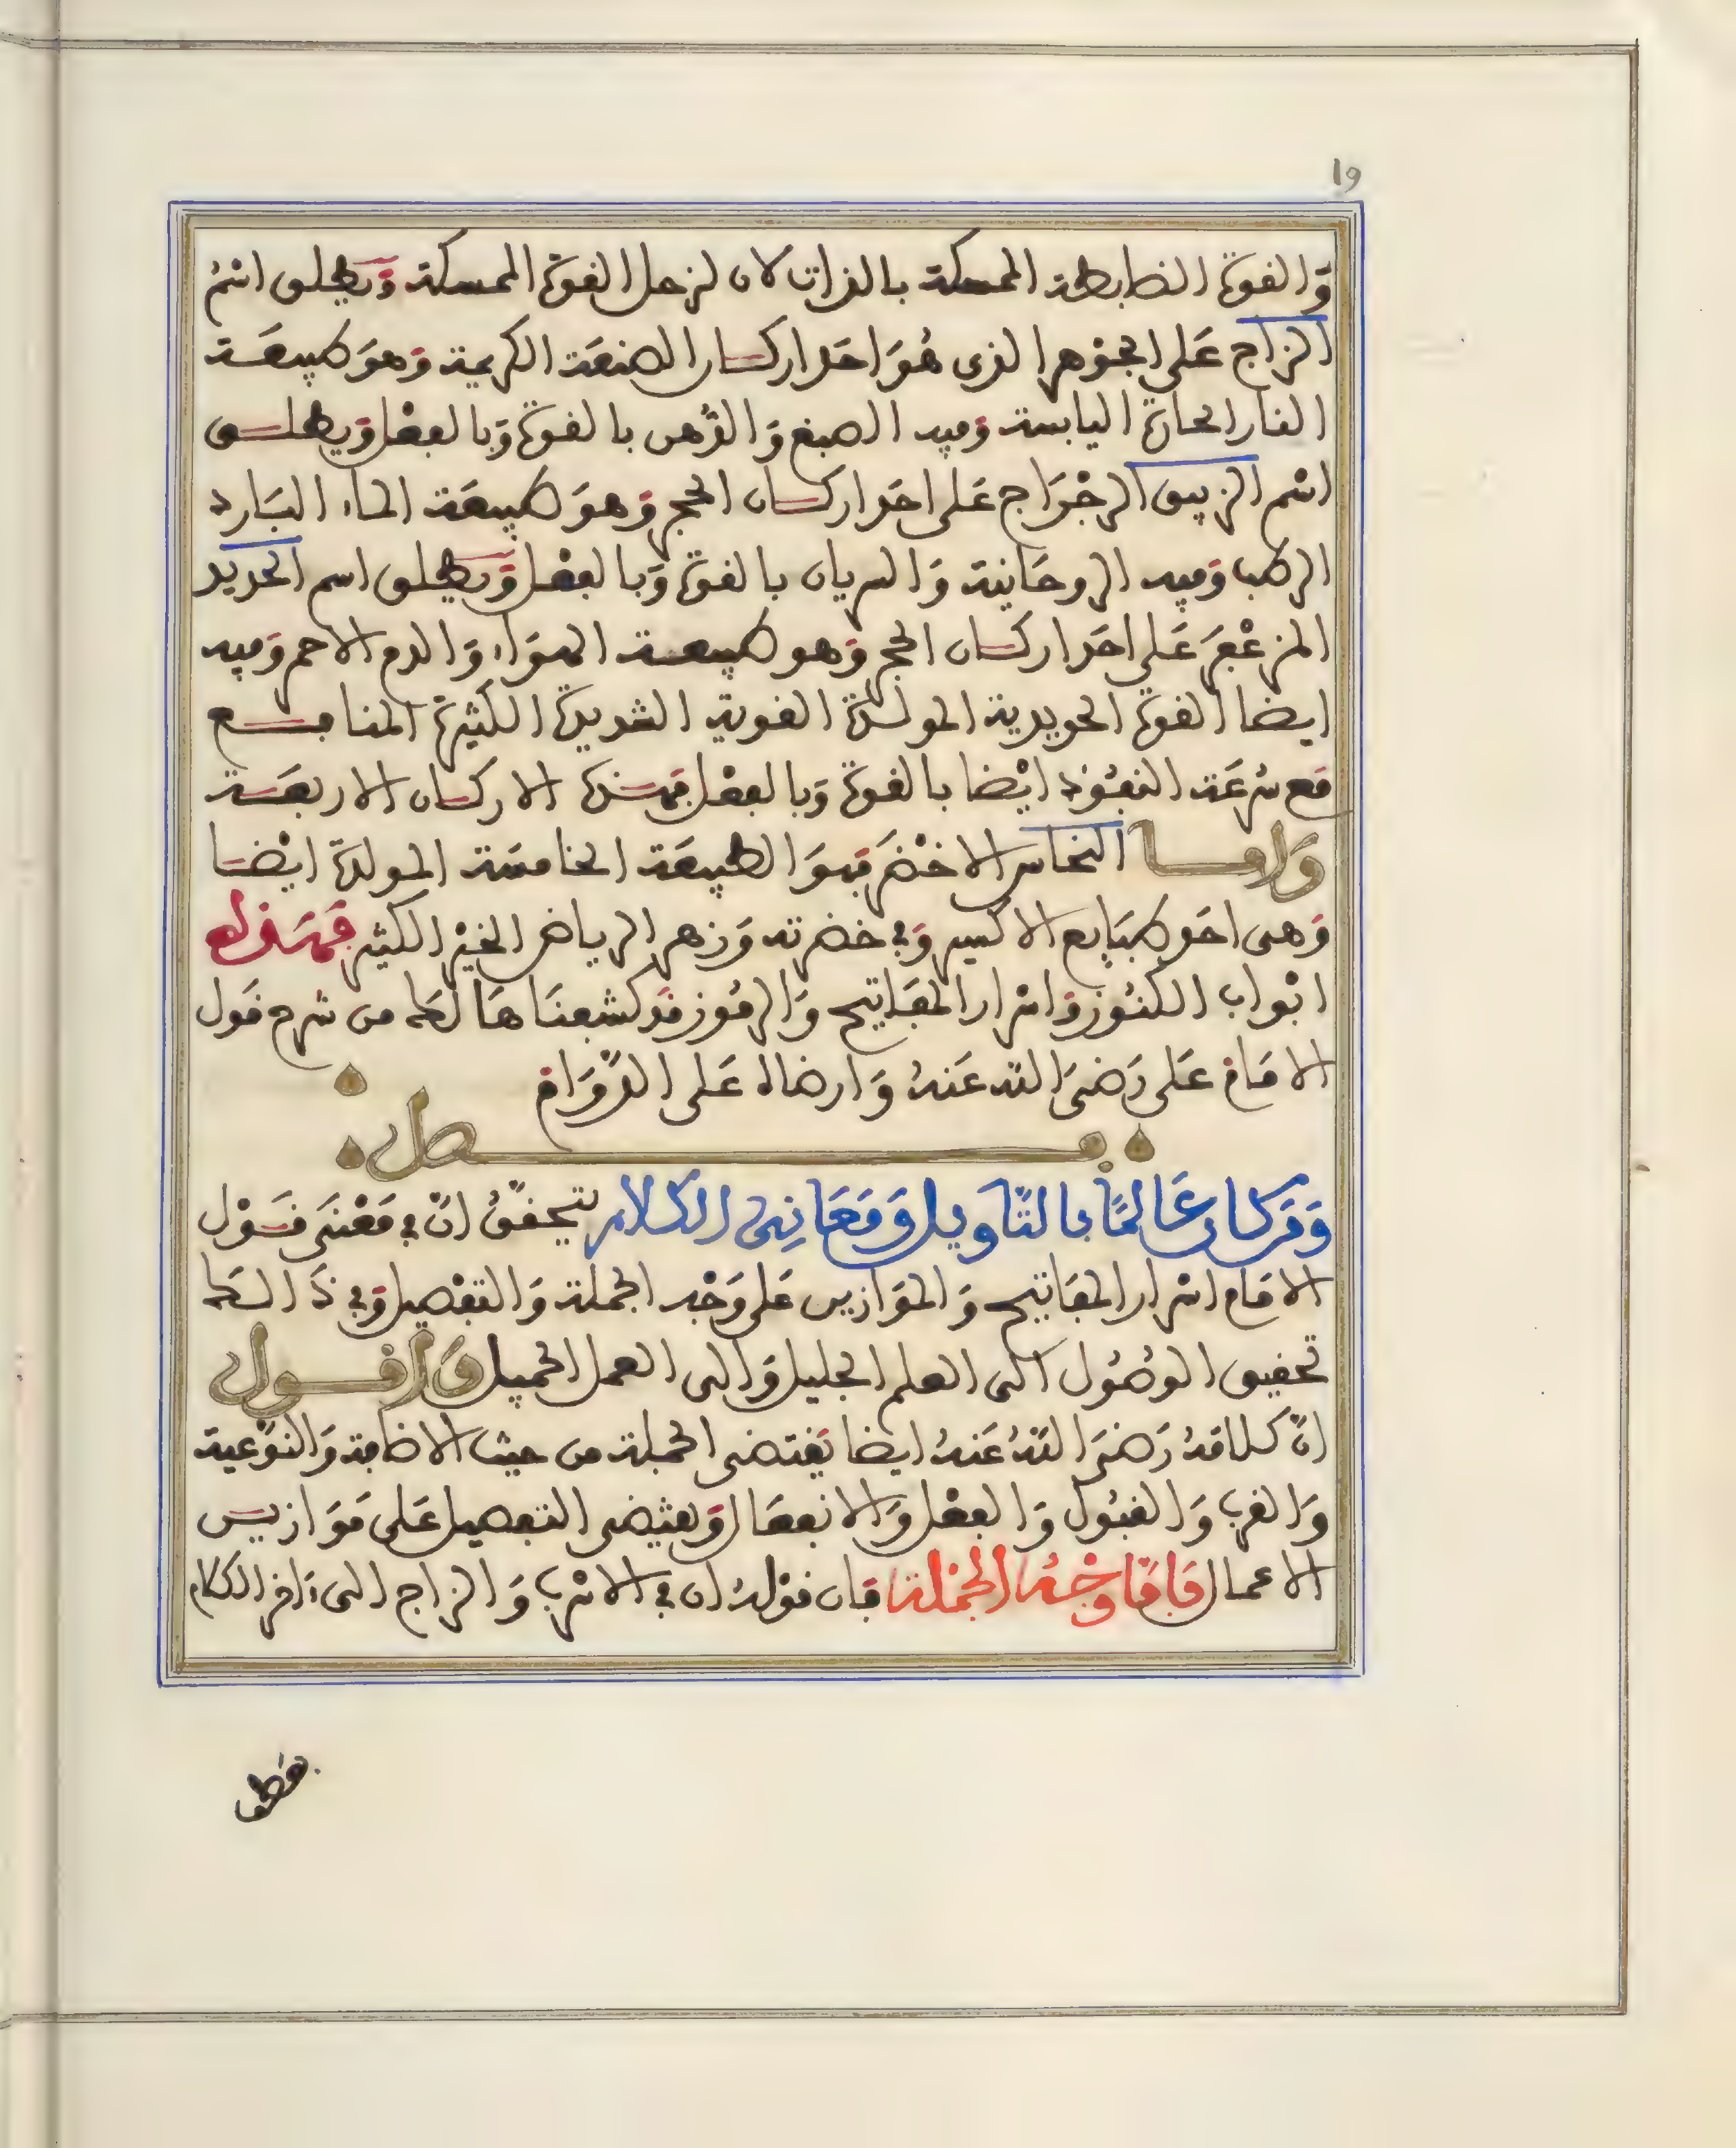 19
وَالقوة الضابطة الممسكة بالذات لان لزحل القوة الممسكة وَيطلق اسْمُ
الزاج عَلى الجوْهر الذى هُوَ احَد اركان الصنعَة الكريمة وَهوَ طبيعَة
النار الحارة اليابسة وَفيه الصبغ وَالدُّهن بالقوة وَبالفعْل وَيطلق
اسْم الزيبق الرجْرَاج عَلى احَد اركان الحجر وَهوَ طبيعَة الماء البَارد
الرطب وَفيه الروحَانية وَالسريان بالقوة وَبالفعْل وَيطلق اسم الحديد
المزعْفَر عَلى احَد اركان الحجر وَهو طبيعة الهوَاء وَالدم الاحمر وَفيه
ايضا القوة الحديدية المولدة القوية الشديدة الكثيرة المنافع
مَع سُرعَة النفُوذ ايْضا بالقوة وَبالفعْل فهَذه الاركان الاربعَة
وَامـا النحاس الاخْضَر فهوَ الطبيعَة الخامسَة المولدة ايْضَا
وَهى احَد طبَايع الاكسير وَفي خضرته وَزهر الرياض الخيْر الكثير فهَذه
ابْواب الكنُوز وَاسْرار المفَاتيح وَالرمُوز قد كشفنَاهَا لَك من شرح قَول
الامَام عَلى رَضىَ اللّه عَنهُ وَارضاه عَلى الدَّوَام
فصل
وَمَن كان عَالِمًا بالتَّاويل وَمَعَانِى الكلام يتحققُ انّ في مَعْنَى قَوْل
الامَام اسْرار المفَاتيح وَالموَازين عَلى وَجْه الجملة وَالتفْصيل وَفي ذَالكَ
تحقيق الوصُول الى العلم الجليل وَالى العمل الجميل وَاقول
انّ كلامَهُ رَضىَ اللّهُ عَنهُ ايضا يَقتضى الجملة من حيث الاضافة وَالنوْعية
وَالقرب وَالقبُول وَالفعْل وَالانفعَال وَيقتضى التفصيل عَلى مَوَازين
الاعمال فَامّا وَجْهُ الجُمْلة فَان قوْلهُ ان في الاسْرب وَالزاج الى ءاخر الكلام